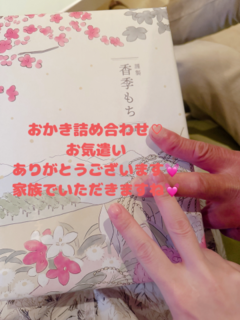 香季もち
おかき詰め合わせ♡
お気遣い
ありがとうございます💕
家族でいただきますね💕